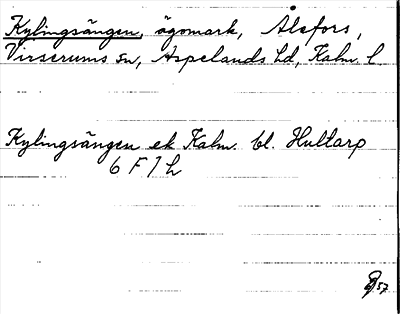 Kylingsängen, ägomark, Alefors,
Virserums sn, Aspelands hd, Kalm. l.
Kylingsängen ek Kalm. bl. Hultarp
6 F 7 h
57